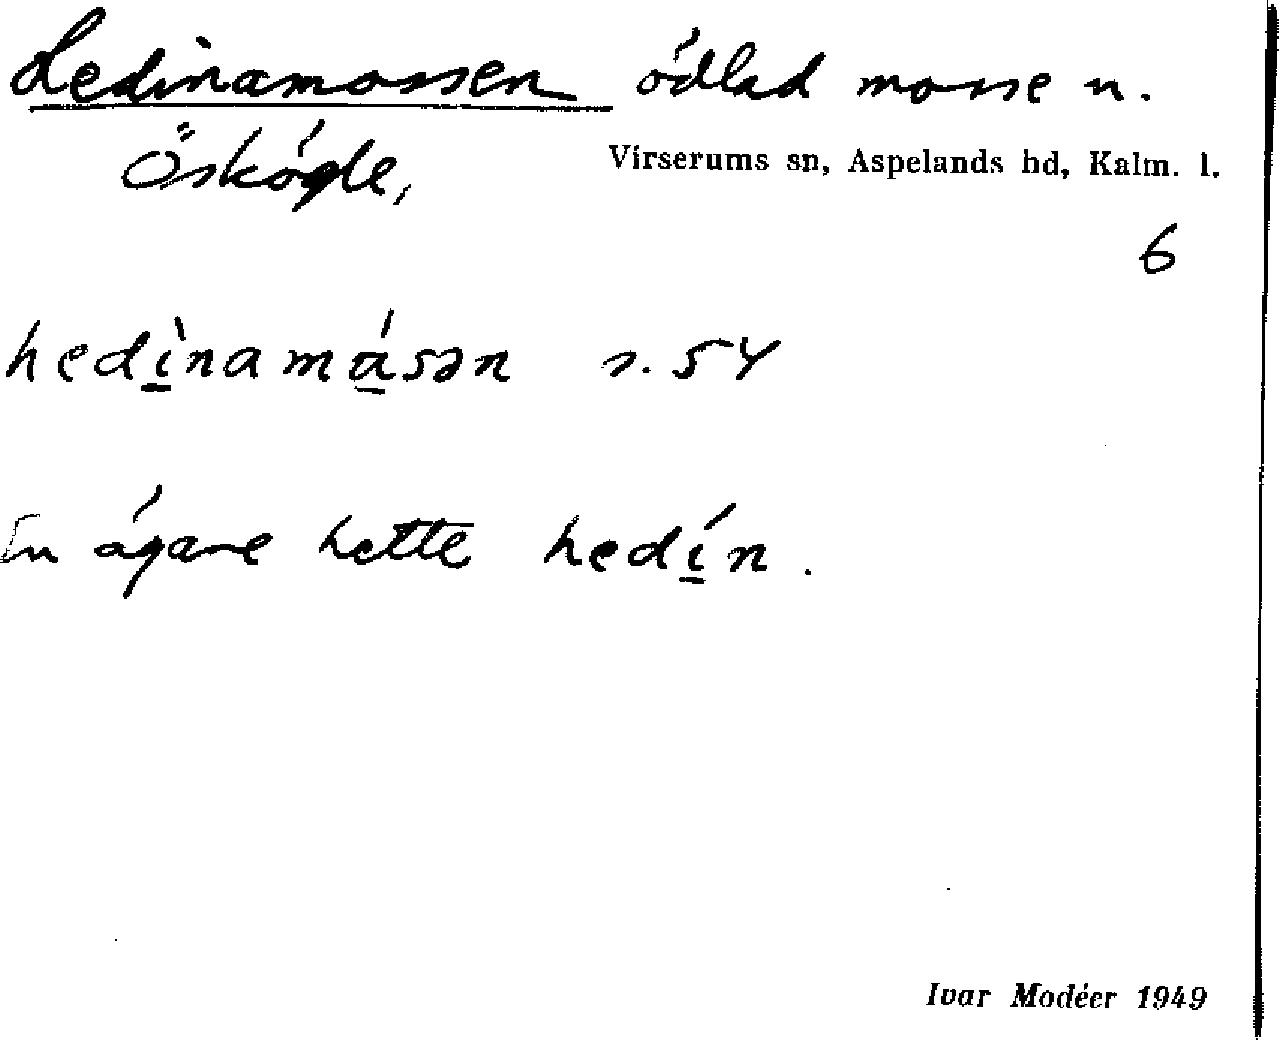 Hedinamossen odlad mosse n.
Öskögle,
Virserums sn, Aspelands hd, Kalm. l.
6
hedìnamásən s. 54
En ägare hette hedín.
Ivar Modéer 1949